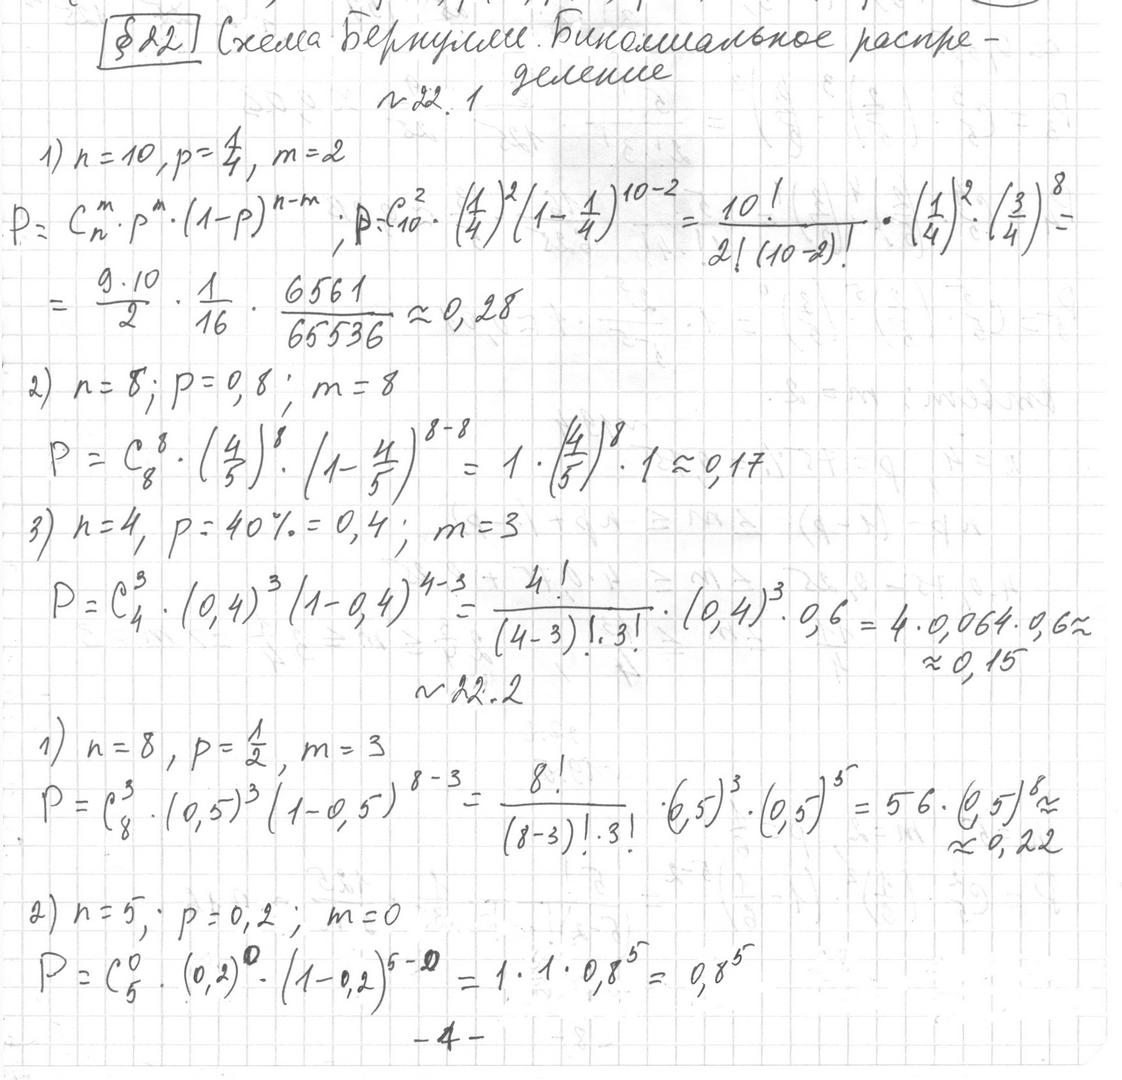 §22 Схема Бернулли. Биномиальное распре-
деление
~22.1
1) n=10, p=1/4, m=2
P = C_n^m · p^m · (1-p)^{n-m}; P=C_{10}^2 · (1/4)^2 (1-1/4)^{10-2} = 10!/(2!(10-2)!) · (1/4)^2 · (3/4)^8 =
= 9·10/2 · 1/16 · 6561/65536 ≈ 0,28
2) n=8; p=0,8; m=8
P = C_8^8 · (4/5)^8 · (1-4/5)^{8-8} = 1 · (4/5)^8 · 1 ≈ 0,17
3) n=4, p=40%=0,4; m=3
P = C_4^3 · (0,4)^3 (1-0,4)^{4-3} = 4!/((4-3)!·3!) · (0,4)^3 · 0,6 = 4·0,064·0,6 ≈
≈ 0,15
~22.2
1) n=8, p=1/2, m=3
P = C_8^3 · (0,5)^3 (1-0,5)^{8-3} = 8!/((8-3)!·3!) · (0,5)^3 · (0,5)^5 = 56 · (0,5)^8 ≈
≈ 0,22
2) n=5, p=0,2; m=0
P = C_5^0 · (0,2)^0 · (1-0,2)^{5-0} = 1·1·0,8^5 = 0,8^5
-4-